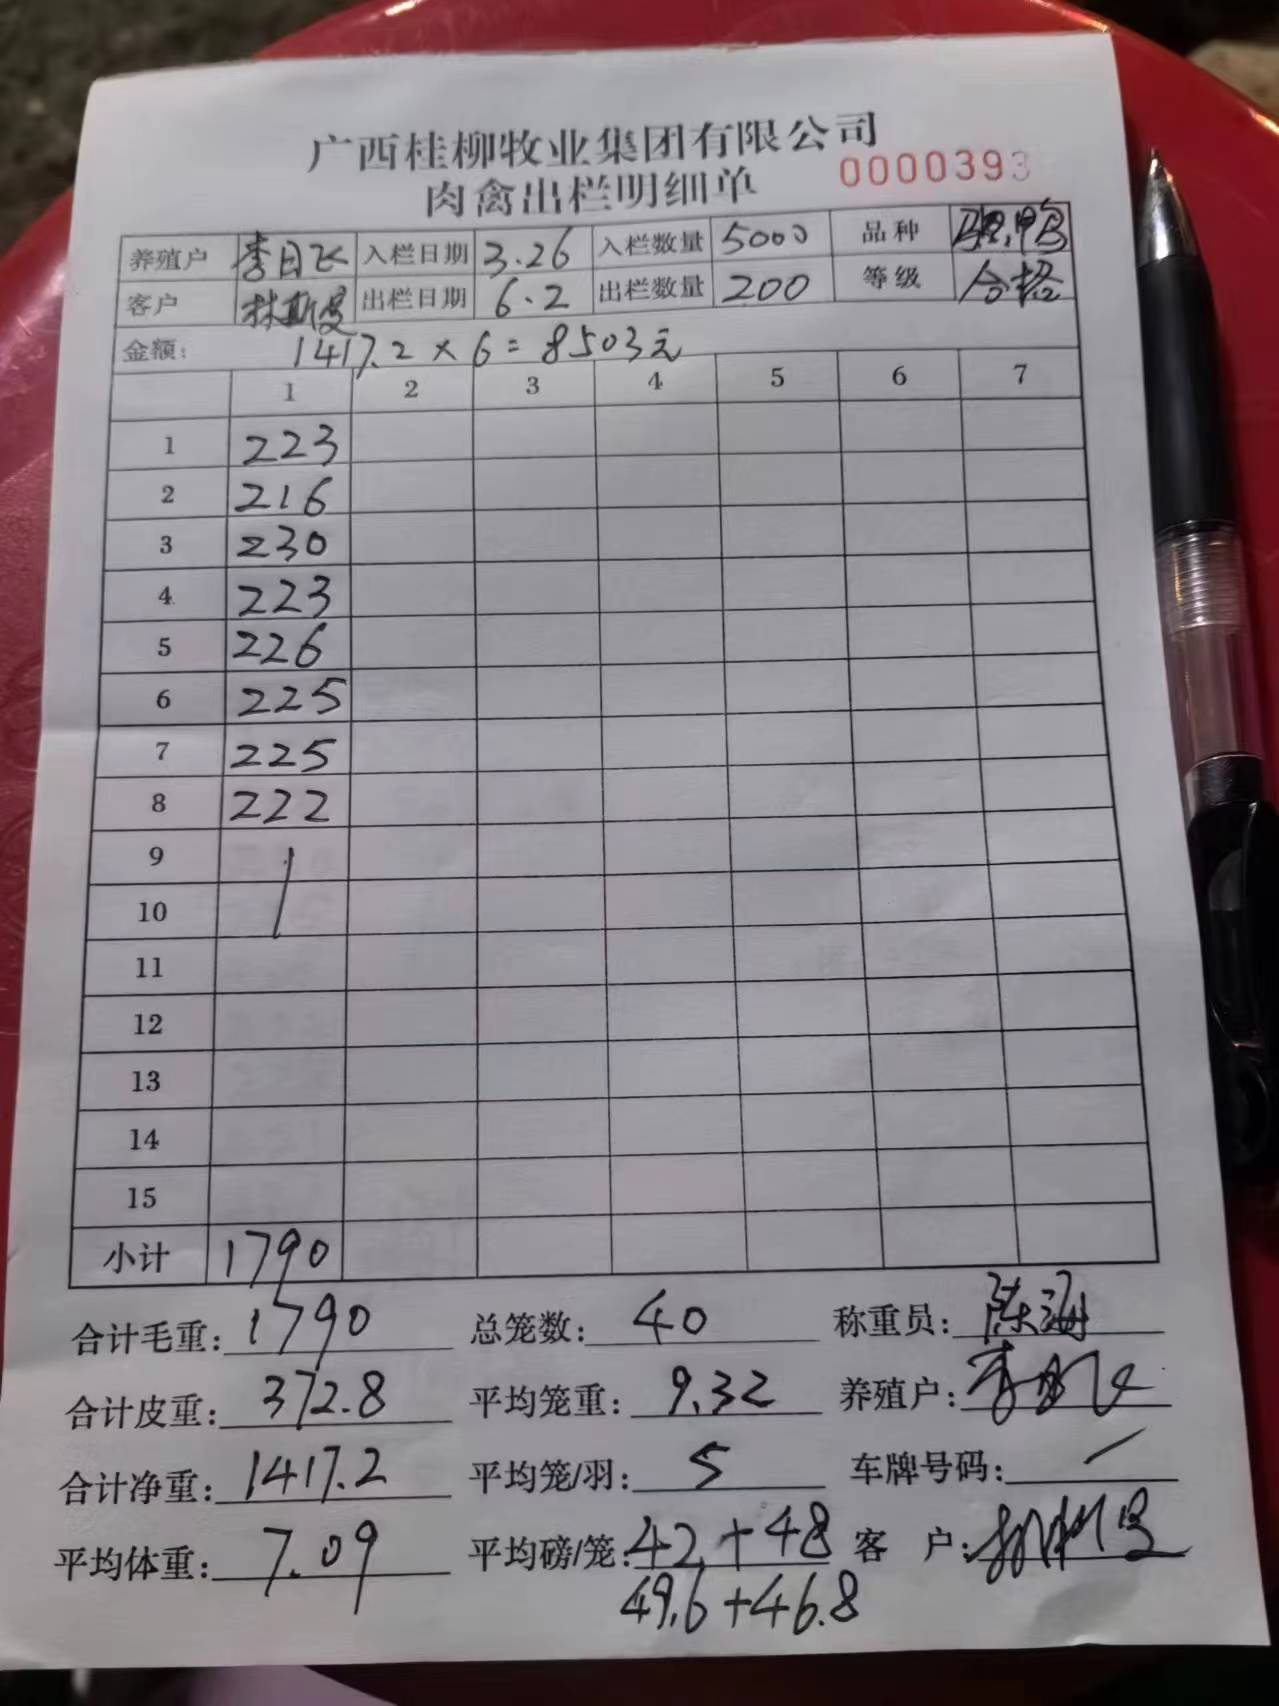 广西桂柳牧业集团有限公司
肉禽出栏明细单 0000393
养殖户 李日飞 入栏日期 3.26 入栏数量 5000 品种
客户 林斯 出栏日期 6.2 出栏数量 200 等级 合格
金额: 1417.2×6=8503元
1 2 3 4 5 6 7
1 223
2 216
3 230
4 223
5 226
6 225
7 225
8 222
9
10
11
12
13
14
15
小计 1790
合计毛重: 1790 总笼数: 40 称重员: 陈海
合计皮重: 372.8 平均笼重: 9.32 养殖户: 李日飞
合计净重: 1417.2 平均笼/羽: 5 车牌号码: /
平均体重: 7.09 平均磅/笼: 42+48 客 户:
49.6+46.8